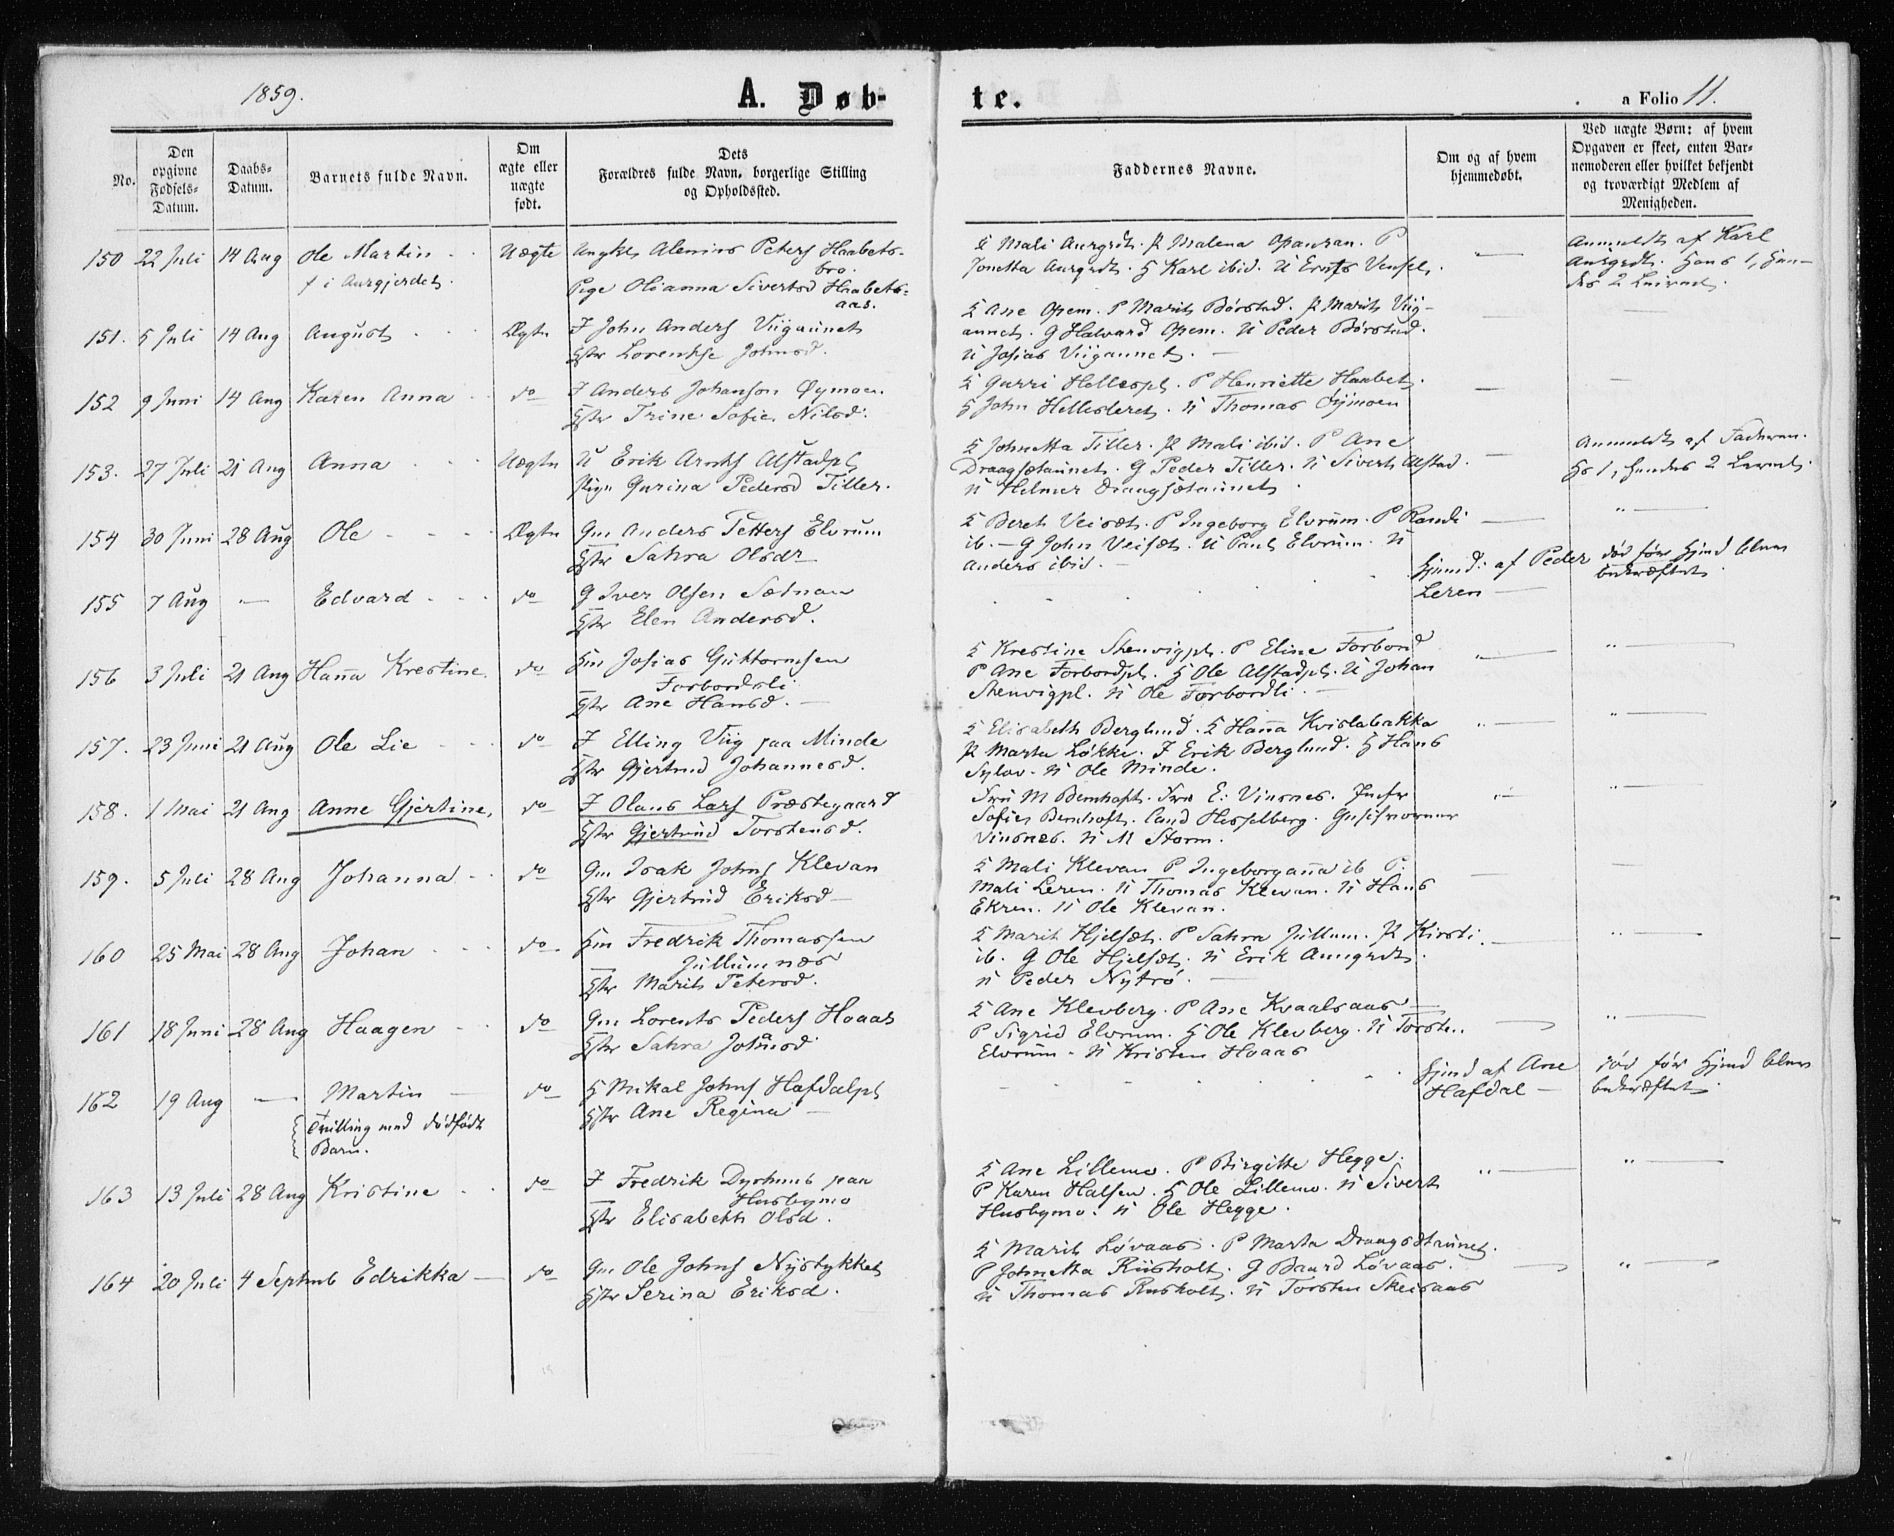 1859.
A. Døb-
te.
a Folio 11.
No.
Den opgivne Fødsels-Datum.
Daabs-Datum.
Barnets fulde Navn.
Om ægte eller uægte født.
Dets Forældres fulde Navn, borgerlige Stilling og Opholdssted.
Faddernes Navne.
Om og af hvem hjemmedøbt.
Ved uægte Børn: af hvem Opgaven er skeet, enten Barnemoderen eller hvilket bekjendt og troværdigt Medlem af Menigheden.
150 22 Juli 14 Aug Ole Martin Uægte Peters Haabets-
f i Aurgjerdet. bro.
Pige Olianna Sivertsd Haabets-
aas.
K Mali P Malena P
Jonetta G Karl ibid. U
Anmeldt af Karl
151. 5 Juli 14 Aug August Ægte I John Anders Viigaunet
Hstr Lorentse Johnsd.
K Ane Opem. P Marit Børstad. P Marit Viig-
aunet. G Halvard Opem. U Peder Børstad.
U Josias Viigaunet.
152 9 Juni 14 Aug Karen Anna do I Anders Johanson Øymoen
Hstr Trine Sofie Nilsd.
K Gurri P Henriette Haabet.
G John U Thomas Øymoen
153. 27 Juli 21 Aug Anna Uægte U Erik Alstadpl
Pige Gurina Pedersd Tiller.
K Johnetta Tiller. P Mali ibid. P Ane
Draagsetaunet. G Peder Tiller. U Sivert Alstad.
U Helmer Draagsetaunet
Anmeldt af Faderen.
154 30 Juni 28 Aug Ole Ægte Gm Anders Petters Elvrum
Hstr Sahra Olsdr
K Beret Veisæt. P Ingeborg Elvrum. P Randi
ib. G John Veisæt. U Paul Elvrum. U
Anders ibid.
155 7 Aug — Edvard do G Iver Olsen Sætnan
Hstr Elen Andersd.
Hjmd: af Peder
Leren
død før Hjmd blev
bekræftet
156 3 Juli 21 Aug Hanna Krestine. do Hm Josias Guttormsen
Forbordsli
Hstr Ane Hansd.
K Krestine P Eline Forbord
P Ane Forbordpl. G Ole Alstadpl. U Johan
U Ole Forbordli.
157. 23 Juni 21 Aug Ole Lie do I Elling Viig paa Minde
Hstr Gjertrud Johannesd.
K Elisabeth Berglund. K Hanna Kvislabakka
P Marta Løkke. I Erik Berglund. G Hans
U Ole Minde.
158. 1 Mai 21 Aug Anne Gjertine, do I Olaus Lars Præstegaard
Hstr Gjertrud Torstensd.
Fru M Bernhoft. Fru E: Vinsnes.
Sofie Bernhoft. Cand Hesselberg.
Vinsnes. U M Storm.
159. 5 Juli 28 Aug Johanna do Gm Isak Johns Klevan
Hstr Gjertrud Eriksd
K Mali Klevan P Ingeborganna ib P.
Mali Leren. U Thomas Klevan. U Hans
Ekren. U Ole Klevan.
160 25 Mai 28 Aug Johan do Hm Fredrik Thomassen
Jullumnæs
Hstr Marit Petersd.
K Marit Hjelsæt. P Sahra Jullum. P Kirsti.
ib. G Ole Hjelsæt. U Erik
U Peder Nytrø.
161 18 Juni 28 Aug Haagen do Gm Lorents Peders Hoaas
Hstr Sahra Johnsd
K Ane Klevberg. P Ane Kvaalsaas
P Sigrid Elvrum. G Ole Klevberg. U Torsten
Elvrum. U Kristen Hoaas
162 19 Aug — Martin do G Mikal Johns Hafdalpl
Tvilling med dødfødt Hstr Ane Regina
Barn.
Hjmd af Ane
Hafdal
død før Hjmd blev
bekræftet
163 13 Juli 28 Aug Kristine do I Fredrik paa
Husbymo
Hstr Elisabeth Olsd.
K Ane Lillemo. P Birgitte Hegge.
P Karen Halsen. G Ole Lillemo. U Sivert
Husbymo. U Ole Hegge.
164 20 Juli 4 Septmb Edrikka do Gm Ole Johns Nystykket
Hstr Serina Eriksd.
K Marit Løvaas. P Marta Draagsetaunet.
P Johnetta Rusholt. G Baard Løvaas.
U Thomas Rusholt. U Torsten Skeisaas